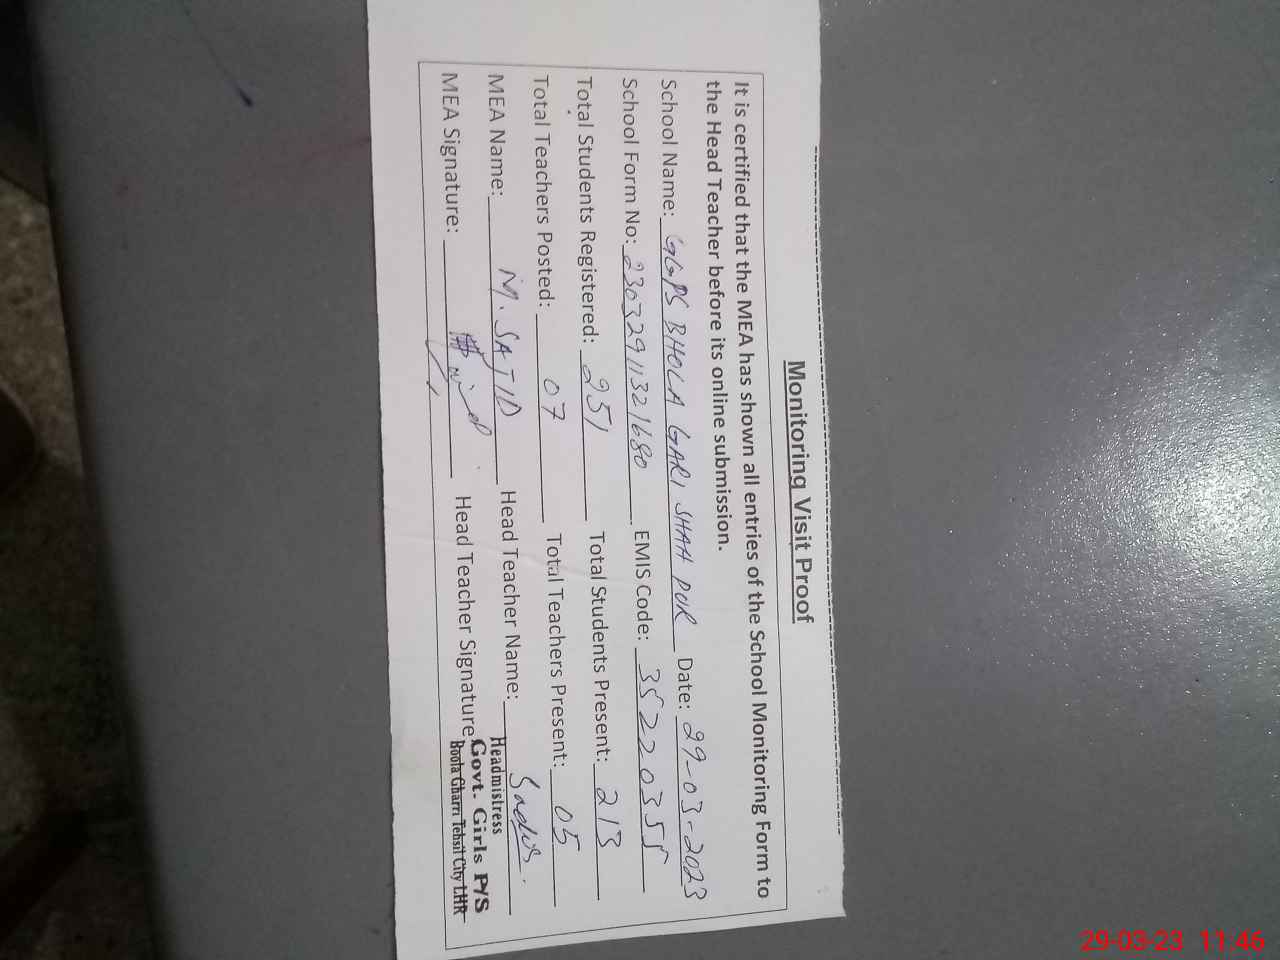 Monitoring Visit Proof
It is certified that the MEA has shown all entries of the School Monitoring Form to
the Head Teacher before its online submission.
School Name: GGPS BHOLA GARI SHAH PUR Date: 29-03-2023
School Form No: 23032911321680 EMIS Code: 35220355
Total Students Registered: 251 Total Students Present: 213
Total Teachers Posted: 07 Total Teachers Present: 05
MEA Name: M. SAJID Head Teacher Name:
MEA Signature: Head Teacher Signature
Headmistress
Govt. Girls P/S
Boola Gharri Tehsil City LHR
29-03-23 11:46